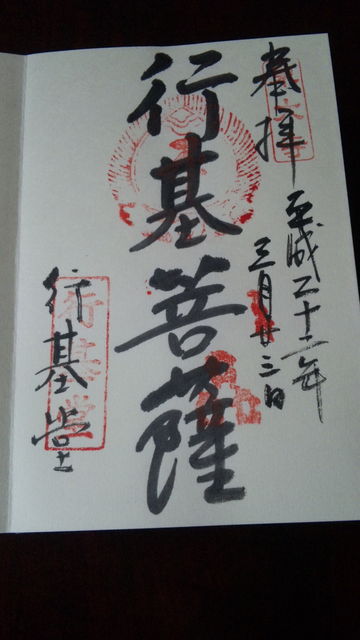 奉拝
平成二十二年
三月廿三日
行基菩薩
行基堂